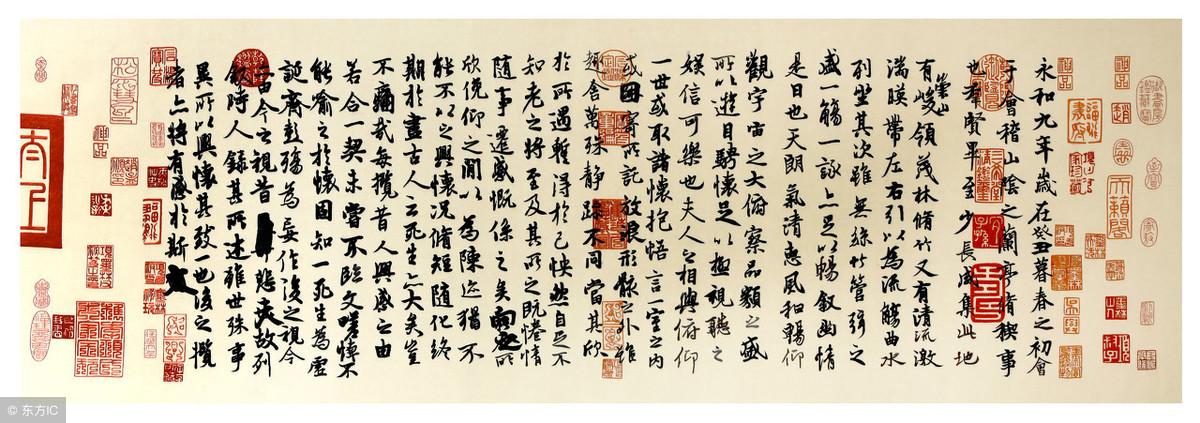 永和九年歲在癸丑暮春之初會
于會稽山陰之蘭亭脩禊事
也羣賢畢至少長咸集此地
有崇山峻領茂林脩竹又有清流激
湍暎帶左右引以為流觴曲水
列坐其次雖無絲竹管弦之
盛一觴一詠亦足以暢敘幽情
是日也天朗氣清惠風和暢仰
觀宇宙之大俯察品類之盛
所以遊目騁懷足以極視聽之
娛信可樂也夫人之相與俯仰
一世或取諸懷抱悟言一室之內
或因寄所託放浪形骸之外雖
趣舍萬殊靜躁不同當其欣
於所遇蹔得於己怏然自足不
知老之將至及其所之既惓情
隨事遷感慨係之矣向之所
欣俛仰之間以為陳迹猶不
能不以之興懷況脩短隨化終
期於盡古人云死生亦大矣豈
不痛哉每攬昔人興感之由
若合一契未嘗不臨文嗟悼不
能喻之於懷固知一死生為虛
誕齊彭殤為妄作後之視今
亦由今之視昔悲夫故列
敘時人錄其所述雖世殊事
異所以興懷其致一也後之攬
者亦將有感於斯文
© 东方IC